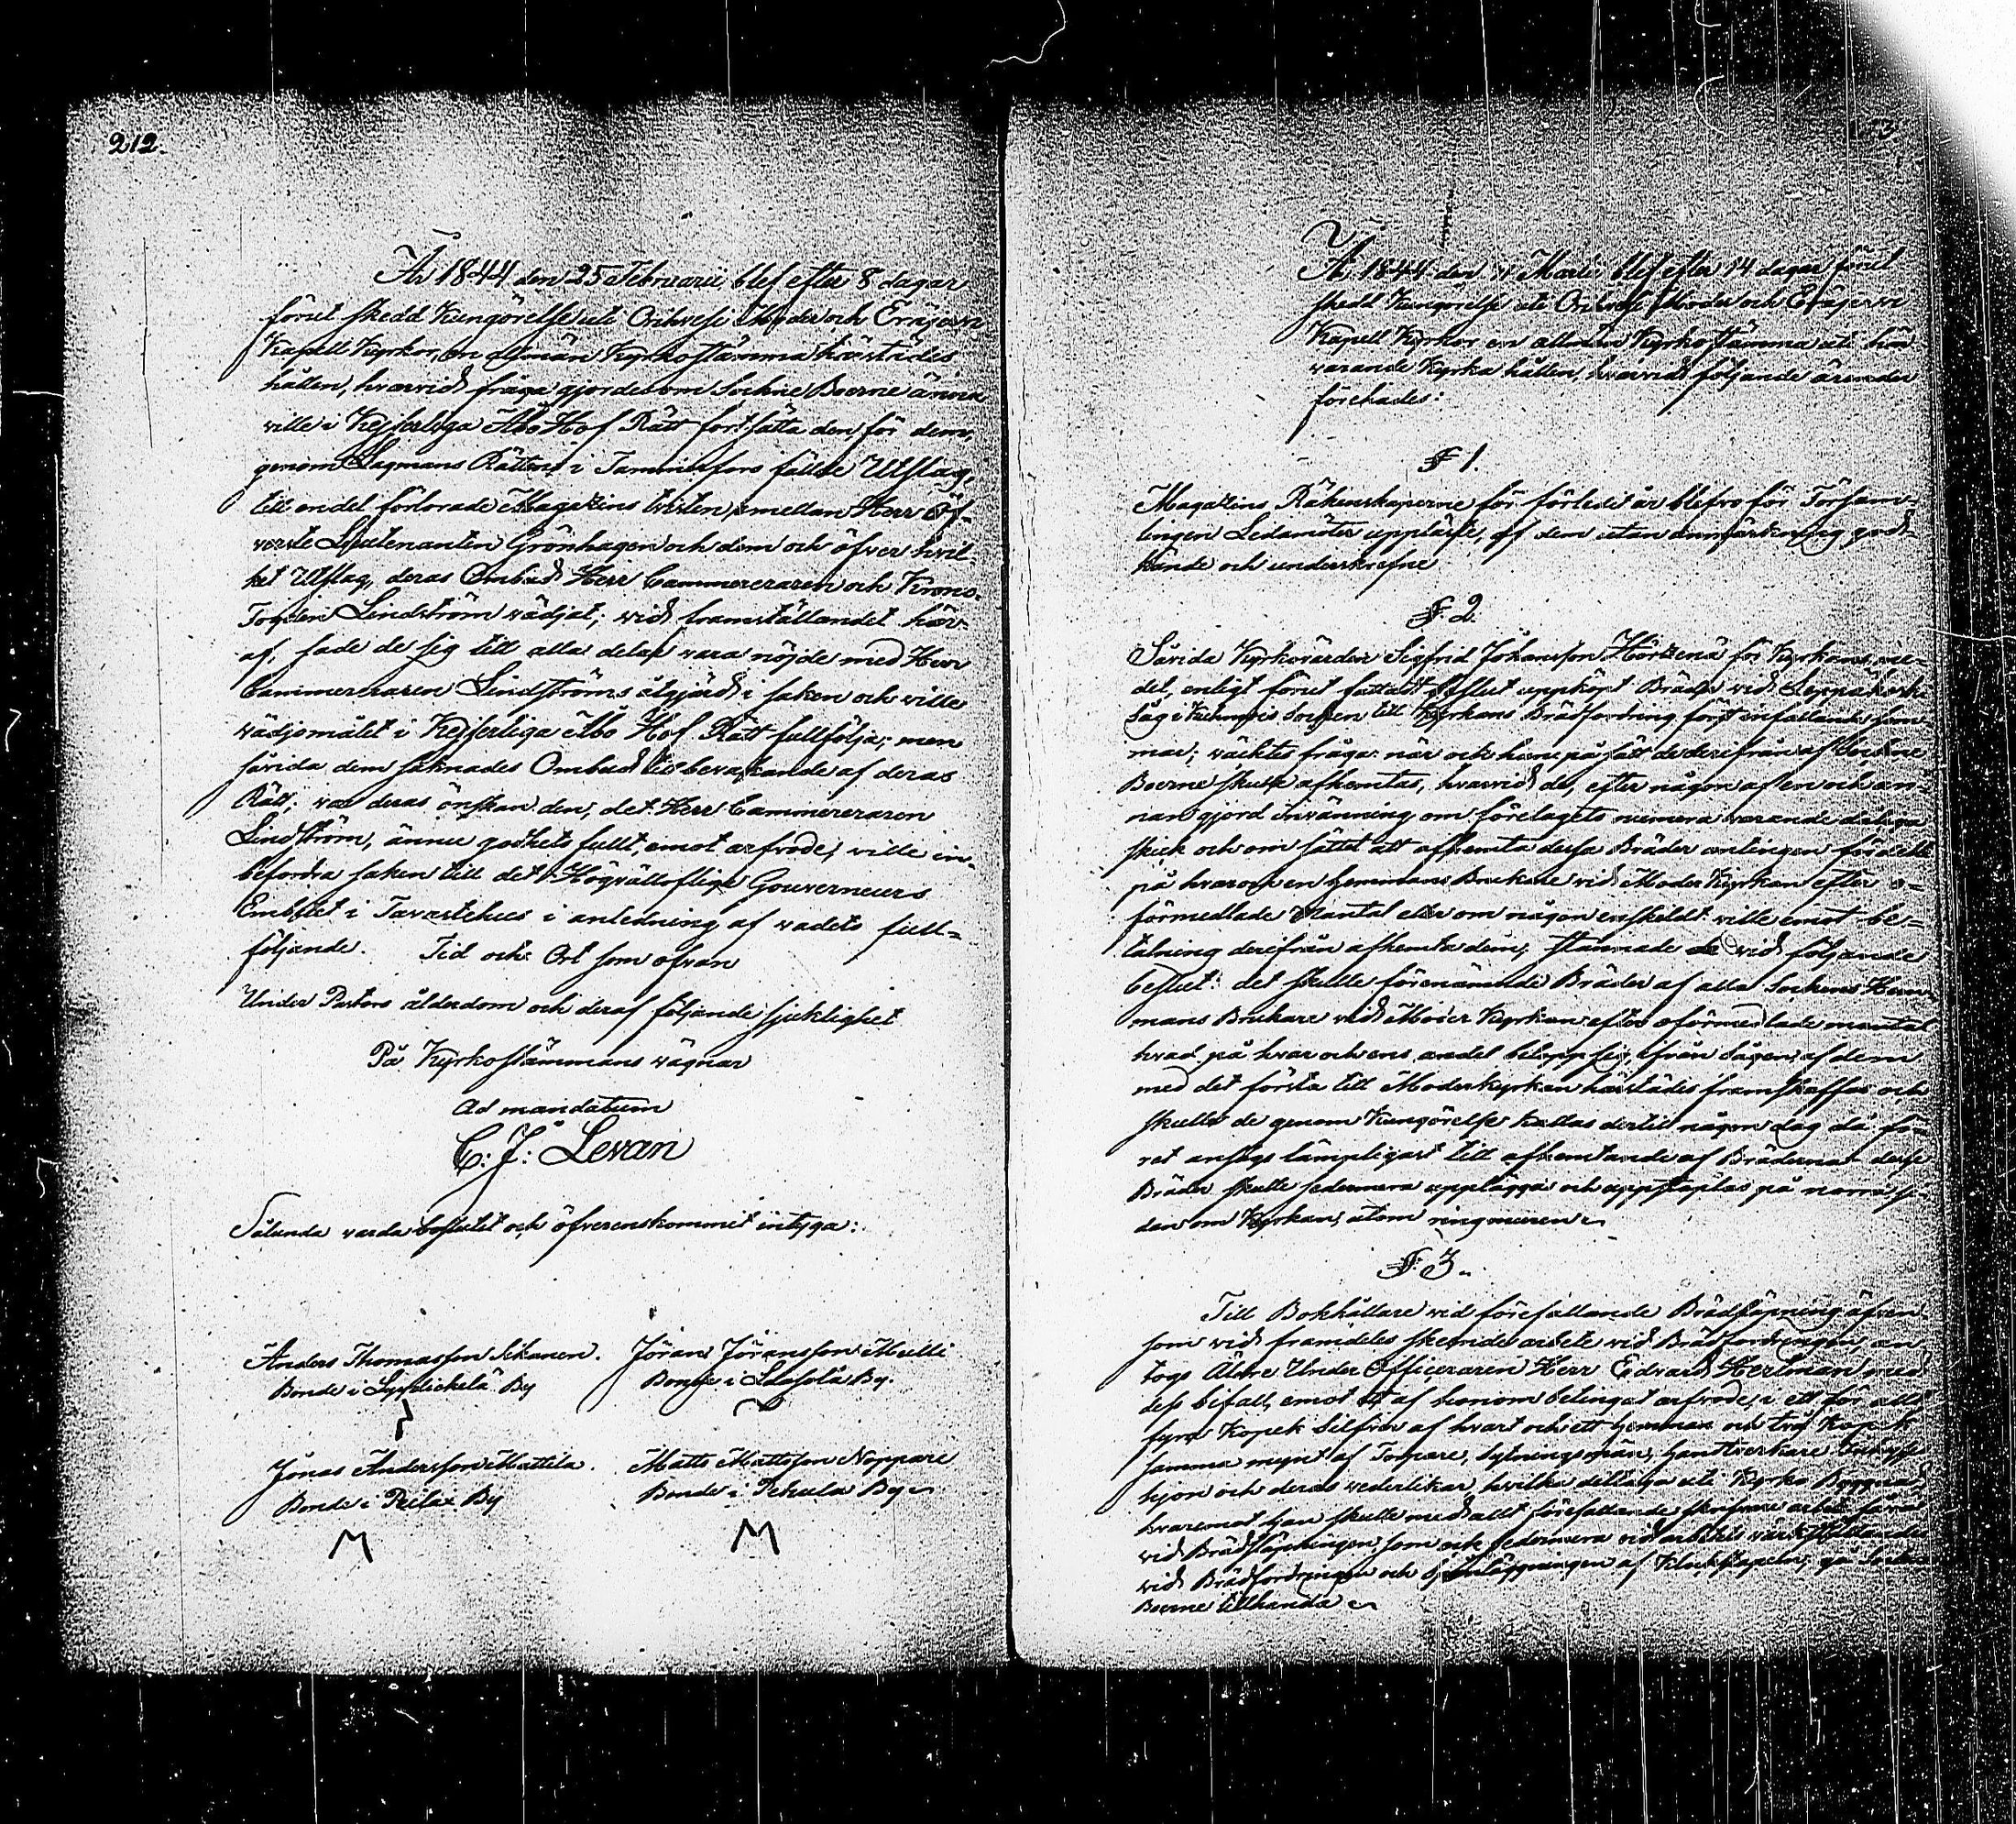 212.
År 1844 den 25 Februarii blef efter 8 dagar
förut skedd Kungörelse uti Orihvesi Moder och Eräjerwi
Kapell Kyrkor, en allmän Kyrkostämma härstädes
hållen, hvarvid fråga gjordes om Sockne Boerne ännu
ville i Kejserliga Åbo Hof Rätt fortsätta den, för dem,
genom Lagmans Rättens i Tammerfors fällde Utslag,
till en del förlorade Magazins tvisten, emellan Herr Öf-
verste Lieutenanten Grönhagen och dem och öfver hvil-
ket Utslag, deras Ombud Herr Cammereraren och Krono-
Fogden Lindström vädjat; vid framställandet här-
af, sade de sig till alla delar vara nöjde med Herr
Cammereraren Lindströms åtgjärd i saken och ville
vädjomålet i Kejserliga Åbo Hof Rätt fullfölja; men
såvida dem saknades Ombud till bevakande af deras
Rätt, var deras önskan den, det Herr Cammereraren
Lindström, ännu godhets fullt, emot arfvode, ville in-
befordra saken till det Högvällofliga Gouverneurs
Embetet i Tavastehus i anledning af vadets full-
följande. Tid och Ort som ofvan
Under Pastors ålderdom och deraf följande sjuklighet
På Kyrkostämmans vägnar
Ad mandatum
C: J: Levan
Sålunda varda beslutit och öfverenskommit intyga:
Anders Thomasson Sikanen. Jöran Jöransson Mulli
Bonde i By Bonde i By.
Jonas Andersson Mattila. Matts Mattsson Noppari
Bonde i By Bonde i Pehula By
År 1844 den Martii blef efter 14 dagar förut
skedd Kungörelse uti Orihvesi Moder och Eräjerwi
Kapell Kyrkor en allmän Kyrkostämma uti här
varande Kyrka hållen, hvarvid följande ärender
förehades:
§ 1.
Magazins Räkenskaperne för förledit år blefvo för Försam-
lingen Ledamöter uppläste, af dem utan anmärkning god-
kände och underskrefne
§. 2.
Såvida Kyrkovärden Sigfrid Johansson för Kyrkans me-
del, enligt förut fattadt Beslut uppköpt Bräder vid Leppäkoski
Såg i Socken till Kyrkans Brädfordring först infallande som-
mar; väcktes fråga: när och huru på sätt de derifrån af Sockne
Boerne skulle afhemtas, hvarvid de, efter någon af en och an-
nan gjord invänning om företagets numera varande dåliga
skick och om sättet att afhemta dessa Bräder antingen fördelt
på hvar och en Hemmans Brukare vid Moder Kyrkan efter o-
förmedlade Mantal eller om någon enskildt ville emot be-
talning derifrån afhemta dem; stannade de vid följande
beslut: det skulle förenämnde Bräder af alla Sockens Hem-
mans Brukare vid Moder Kyrkan efter oförmedlade mantal
hvad på hvar och ens andel belöpp sig, ifrån Sågen af dem
med det första till Moderkyrkan härstädes framskaffas och
skulle de genom Kungörelse kallas dertill någon dag då fö-
ret ansågs lämpligast till afhemtande af Bräderna desse
Bräder skulle sedermera uppläggas och uppstaplas på norra si-
dan om Kyrkan, utom ringmuren
§. 3.
Till Bokhållare vid förefallande Brädsågning äfven
som vid framdeles skeende arbete vid Brädfordringen, an-
togs Äldre Under Officeraren Herr Edvard Herlman med
dess bifall, emot ett af honom betingat arfvode, i ett för allt
fyra Kopek Silfver af hvart och ett Hemman och två Kop.
samma mynt af Torpare, Handtverkare
hjon och deras vederlikar, hvilka deltaga uti Kyrko Byggnad,
hvaremot han skulle med allt förefallande arbete
vid som och sedermera vid arbetets
vid Brädfordringen och af Klockstapeln, gå Sockne
Boerne tillhanda